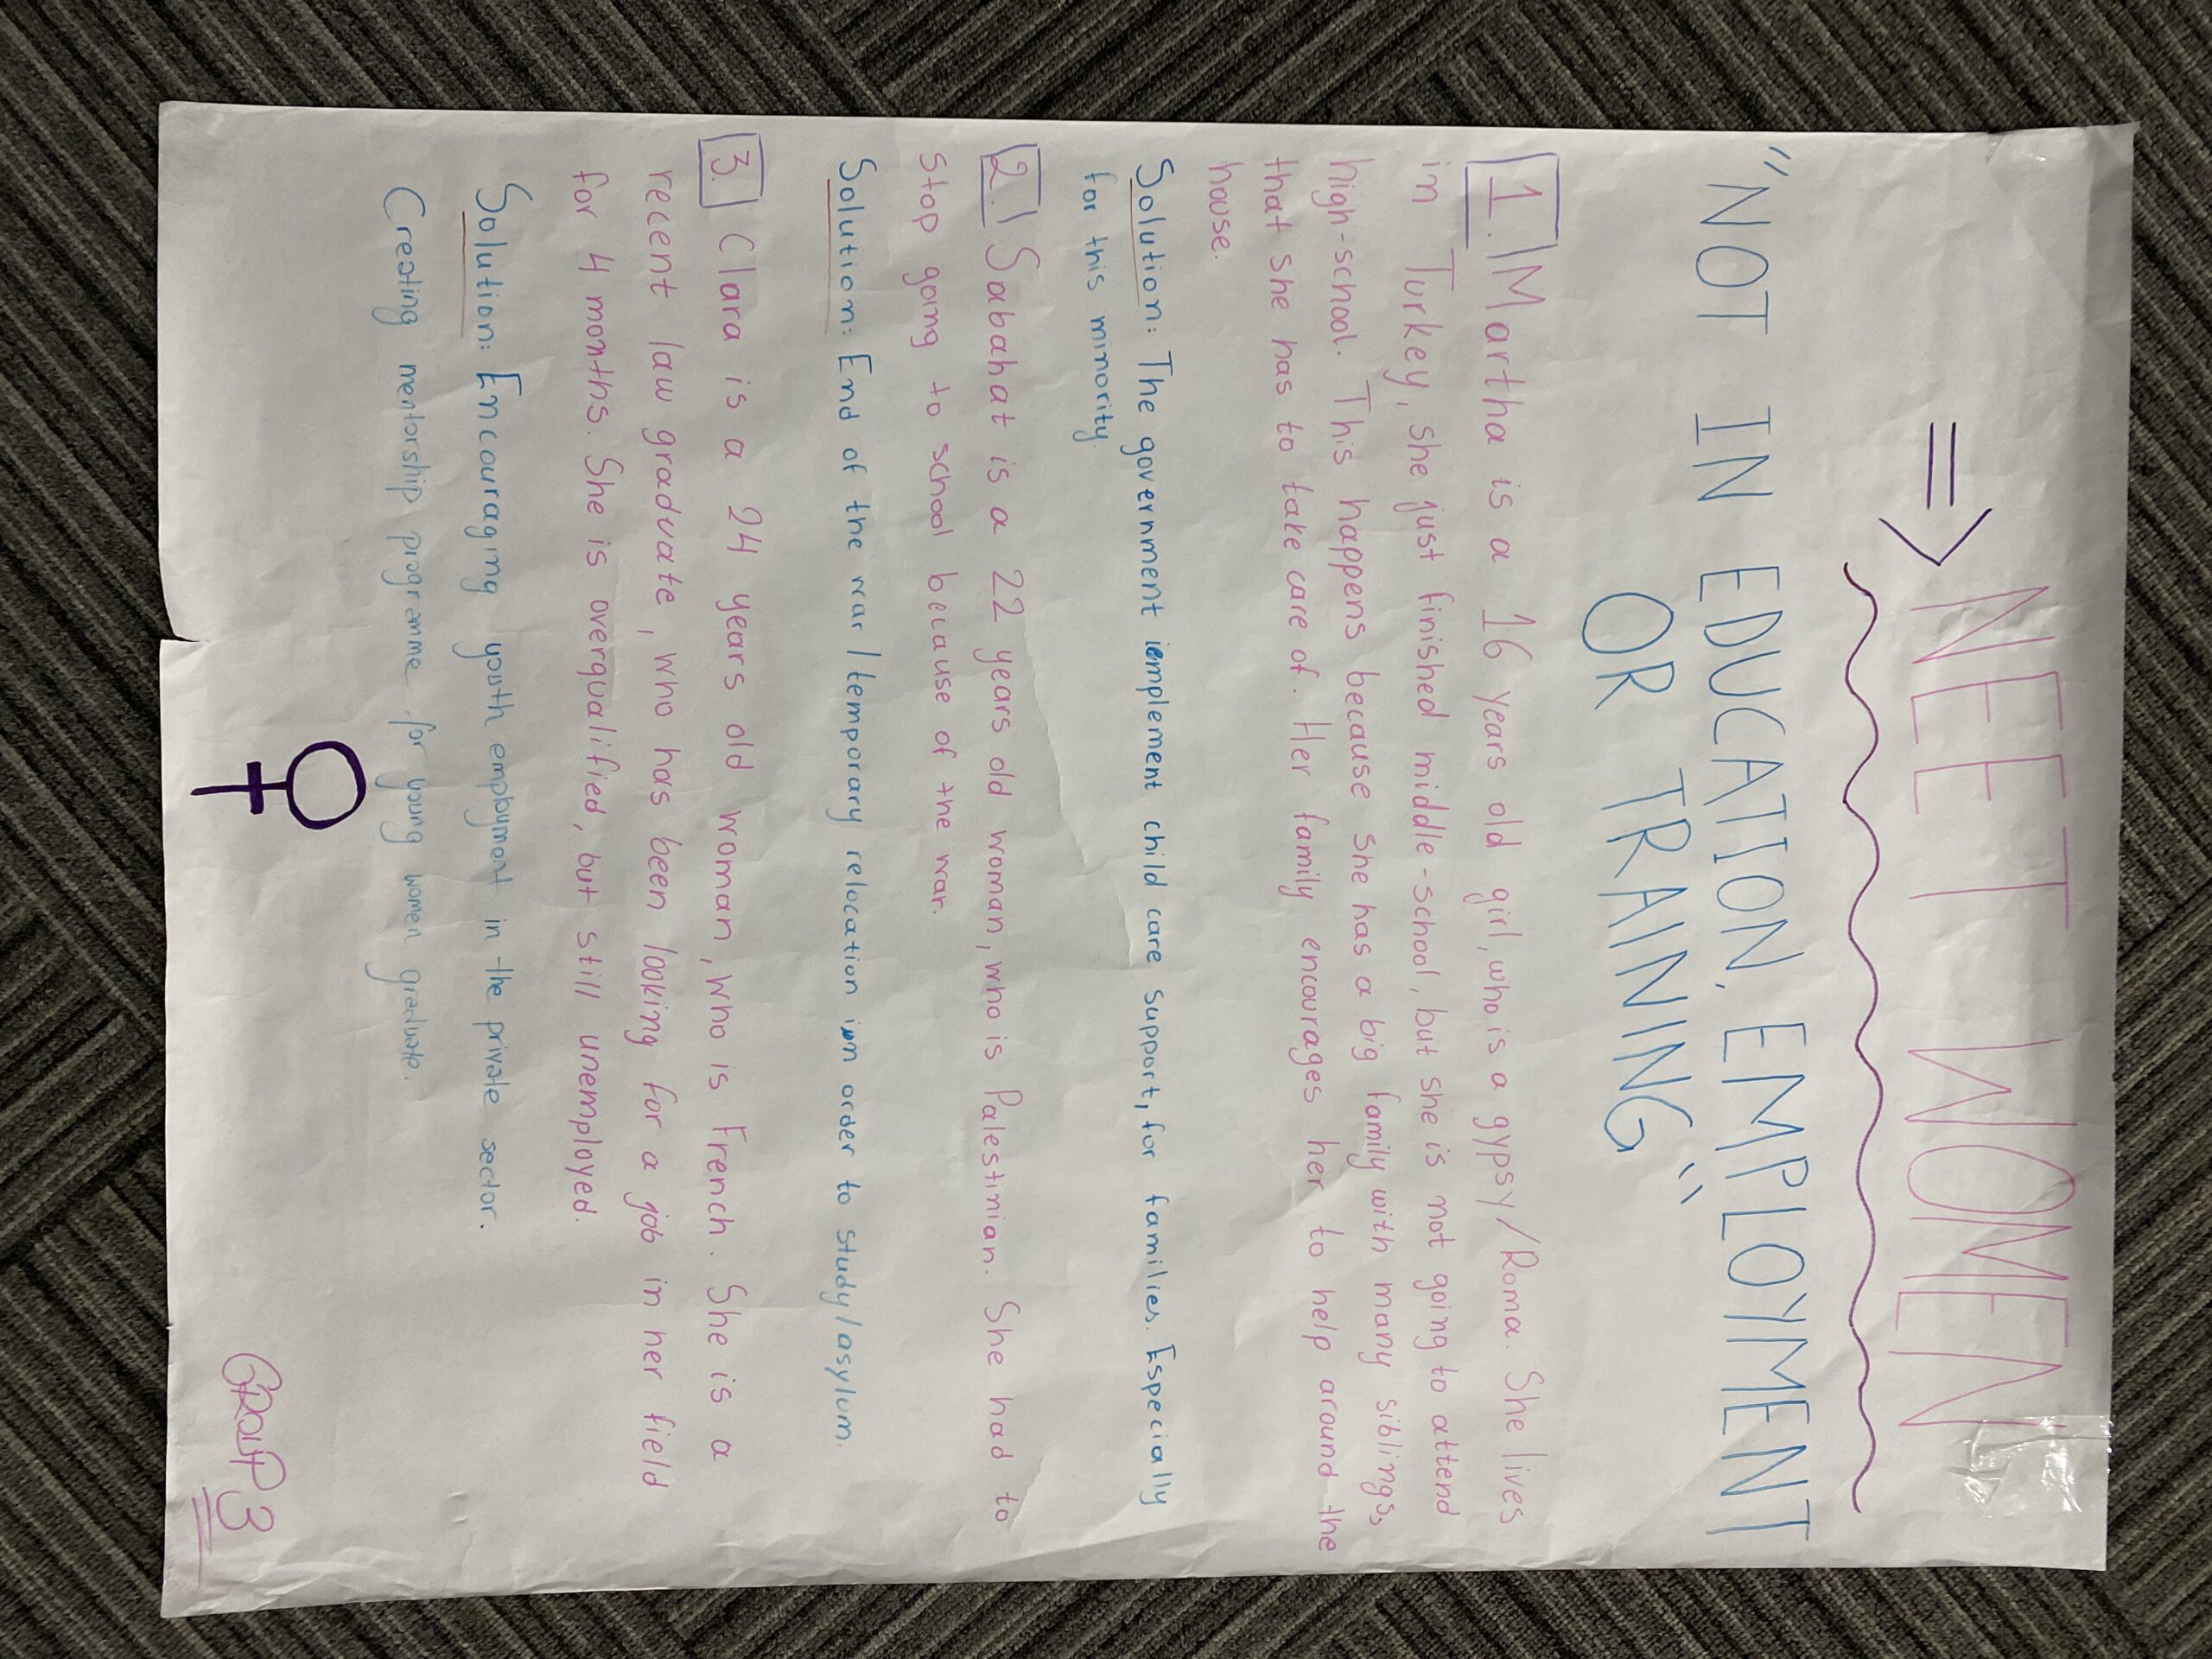 ⇒ NEET WOMEN
"NOT IN EDUCATION, EMPLOYMENT
OR TRAINING"
1. Martha is a 16 years old girl, who is a gypsy/Roma. She lives
in Turkey, she just finished middle-school, but she is not going to attend
high-school. This happens because she has a big family with many siblings,
that she has to take care of. Her family encourages her to help around the
house.
Solution: The government implement child care support, for families. Especially
for this minority.
2. Sabahat is a 22 years old woman, who is Palestinian. She had to
stop going to school because of the war.
Solution: End of the war / temporary relocation in order to study/asylum.
3. Clara is a 24 years old woman, who is French. She is a
recent law graduate, who has been looking for a job in her field
for 4 months. She is overqualified, but still unemployed.
Solution: Encouraging youth employment in the private sector.
Creating mentorship programme for young women graduate.
♀
GROUP 3